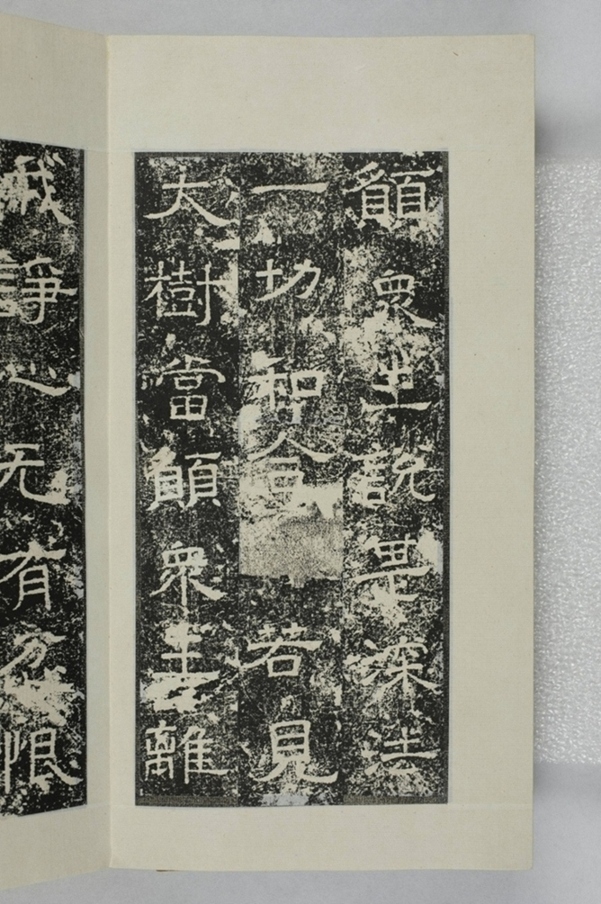 願衆生說甚深法
一切和合若見
大樹當願衆生離
我諍心无有忿恨